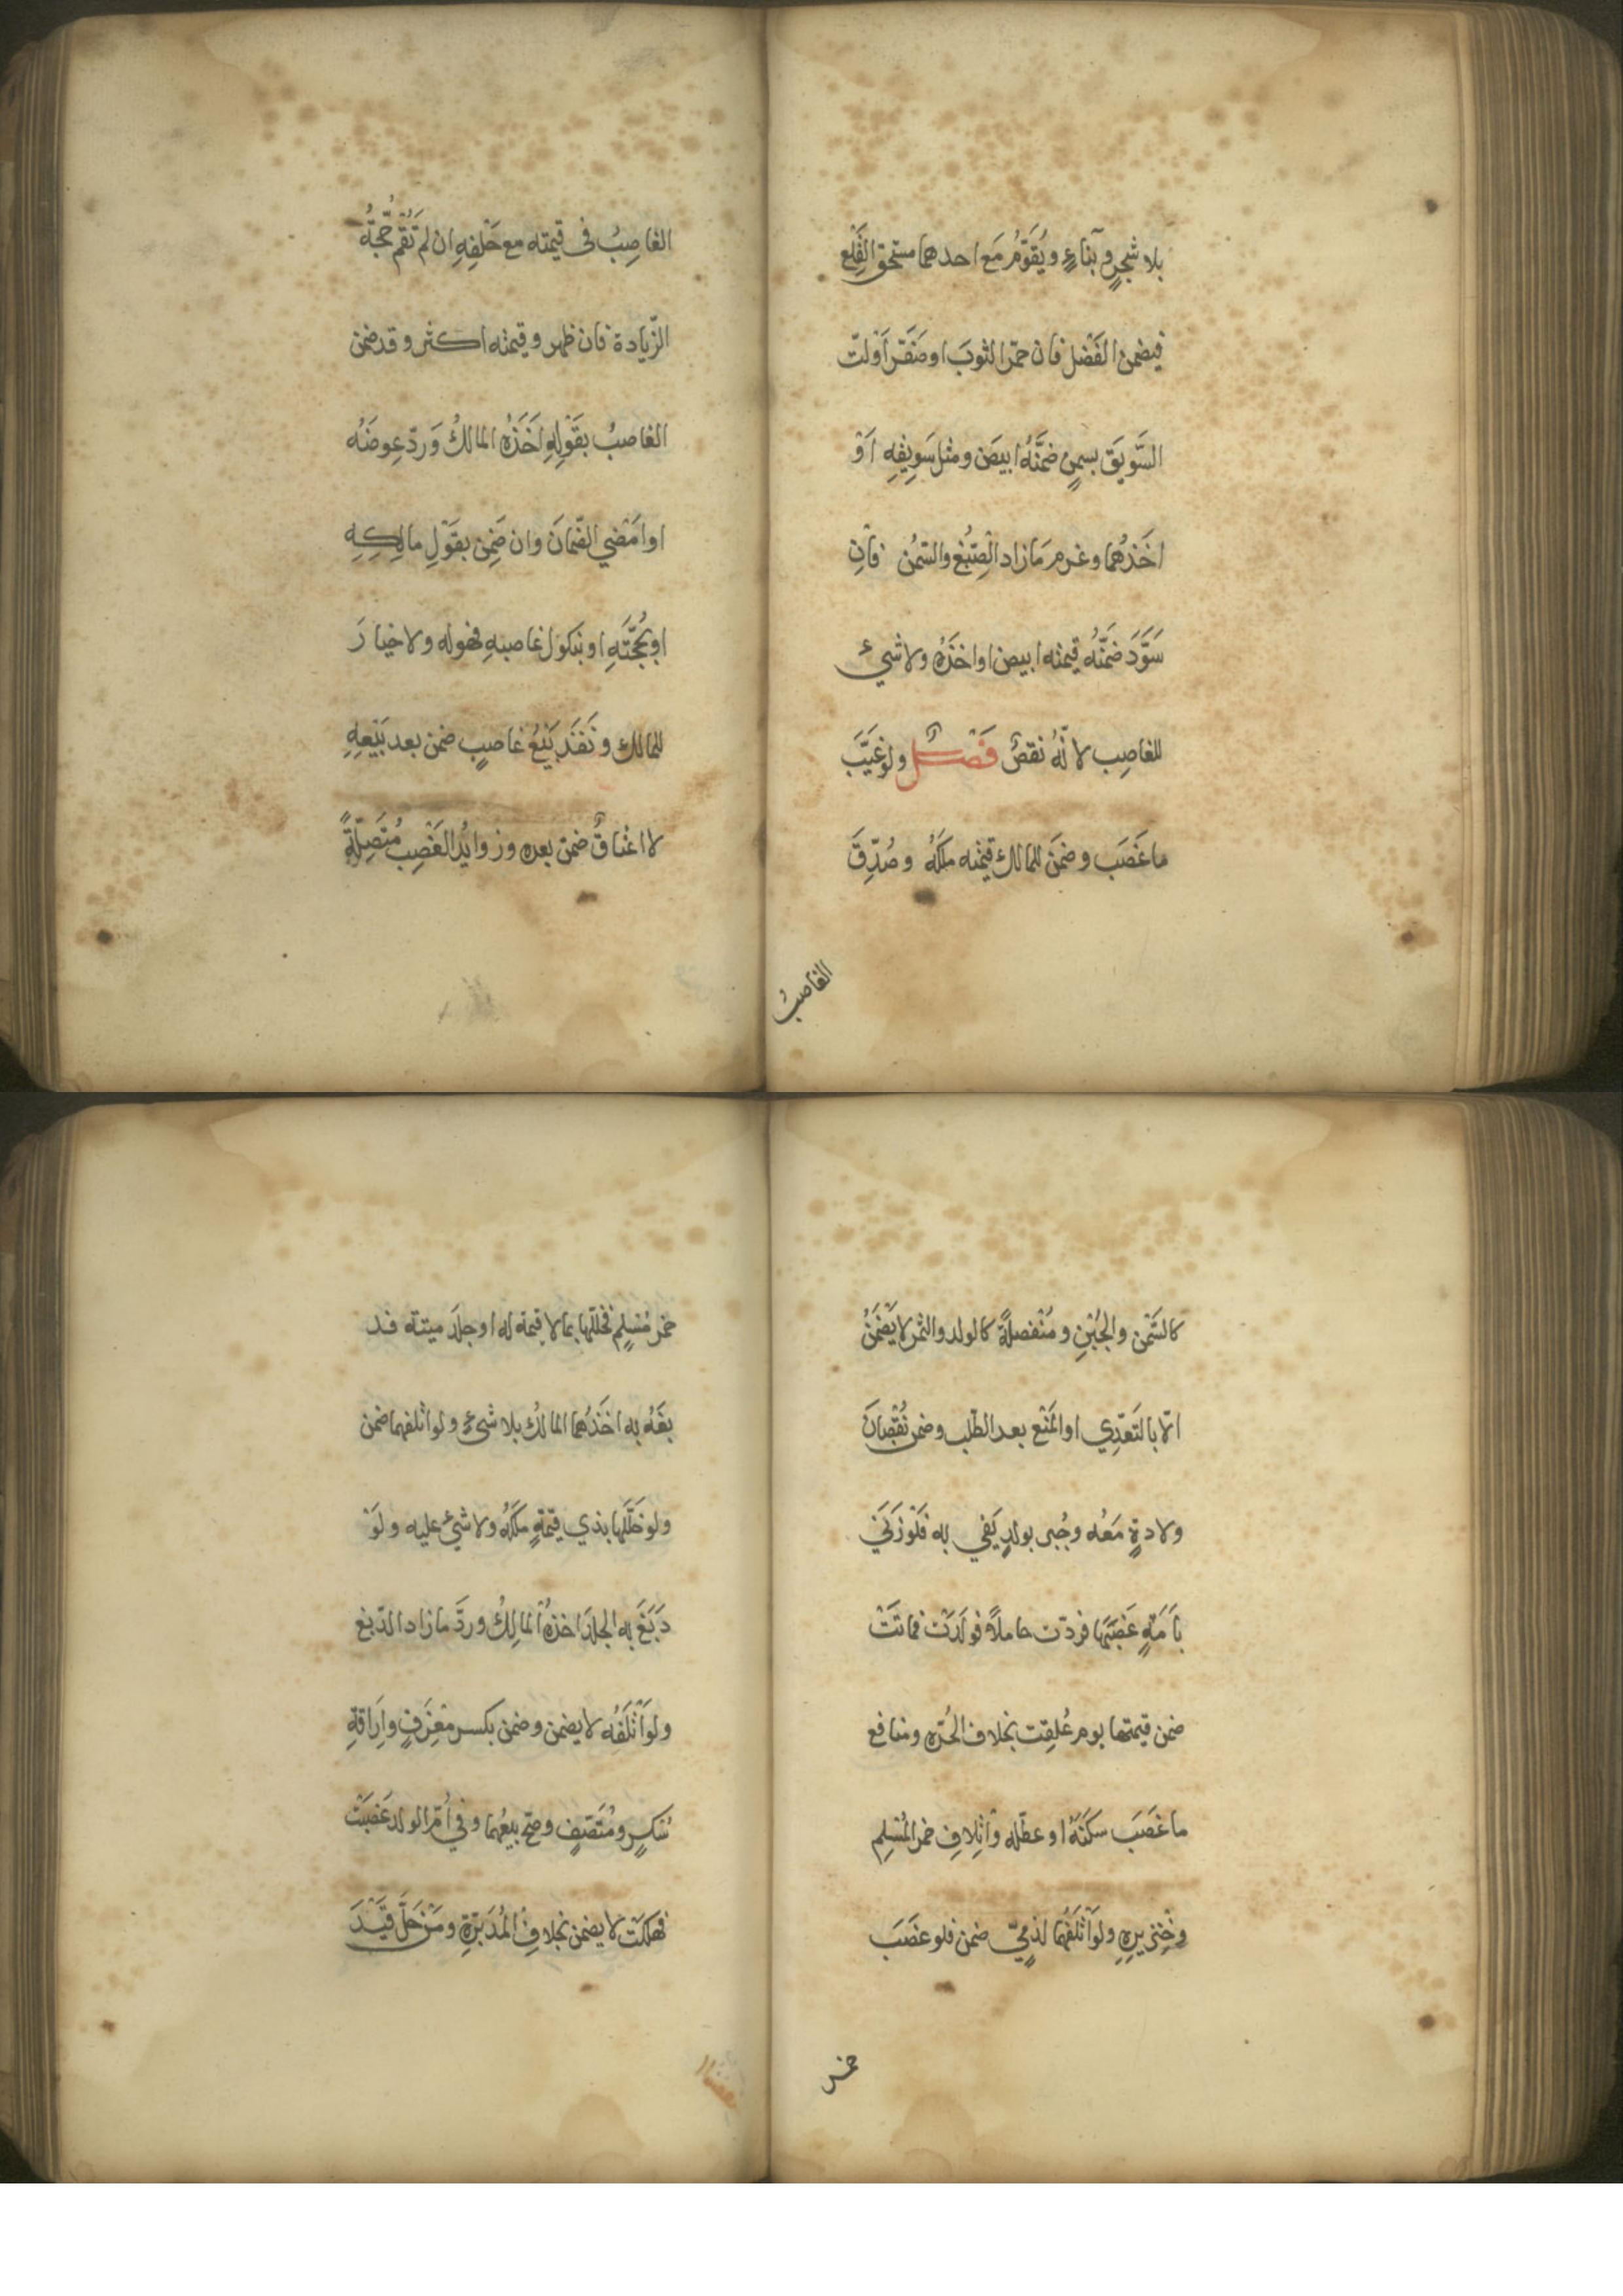 بلا شجرٍ وبناءٍ ويُقَوَّمُ مَع احدهما مستحق القَلْع
فيضمن الفَضْل فان حمّر الثوبَ او صَفَّر اَوْلتّ
السَّويَق بسمنٍ ضمَّنَهُ ابيضَ ومثل سَوِيقِهِ اَوْ
اخَذَهُما وغرم مَا زاد الصِّبْغ والسّمْن فاَنِ
سَوَّدَ ضَمَّنَهُ قيمته ابيض او اخذَهُ ولا شيءَ
للغاصِب لانّهُ نقصٌ فَصْــلٌ ولو غَيَّبَ
ما غَصَبَ وضمَن للمالك قيمته ملكَهُ وصُدِّقَ
الغاصبُ
الغاصِبُ فى قيمته مع حَلْفِهِ ان لم تَقُمْ حُجّةُ
الزّيادة فان ظهر وقيمته اكثر وقد ضمن
الغاصبُ بقَوْلِهِ اَخَذَهُ المالكُ وَردّ عِوضَهُ
او امَضْي الضّمانَ وان ضَمِنَ بقَوْلِ مالِكِهِ
او بحُجَّتِهِ او نبكول غاصبهِ فهو له ولا خيارَ
للمالك ونَفَذَ بَيْعُ غاصبٍ ضمن بعد بَيْعِهِ
لا اعتاقٌ ضمن بعده وزوايدُ الغَصْبِ مُتَصِلَةً
كالسَّمْن والجُبْنِ ومُنْفصلةً كالولد والثمر لا يَضْمَنُ
الّا بالتَعَدِّي او المَنْع بعد الطّلب وضمن نُقْصَانَ
ولادةٍ مَعُه وجُبر بولدٍ يَفي به فَلَوْ زَنَي
باَمَةٍ غَصَبَها فردّت حاملاً فولَدَتْ فماتَتْ
ضمن قيمتها يوم عُلِقت بخلاف الحُرّه ومنافع
ما غَصَبَ سكَنَهُ او عطّله وْاتلافِ خمر المُسْلِمِ
وخِنْزيرِهِ ولو اَتلَفَهُما لذمّيٍ ضمن فلو غصَبَ
خمر
خمر مُسْلِمٍ فخلّلها بما لا قيمة له او جلدَ ميتة فد
بغَهُ به اخَذَهُما المالكُ بلا شيءٍ ولو اتلفهما ضمن
ولو خلَّلَها بذي قيمَةٍ ملكَهُ ولا شيْ عليه ولَوْ
دَبَغَ به الجلدَ اخذهُ المالِكُ وردَّ ما زاد الدّبغ
ولو اَتْلَفَهُ لا يضمن وضمن بكسر مِعْزَفٍ وارَاقةِ
سُكرٍ ومُنَصّفٍ وصح بيعُهُما وفي اُمّ الولد غَصَبَتْ
فهلكَتْ لا يضمن بخلافِ المُدَبّرَةِ ومَنْ حَلّ قَيْــدَ